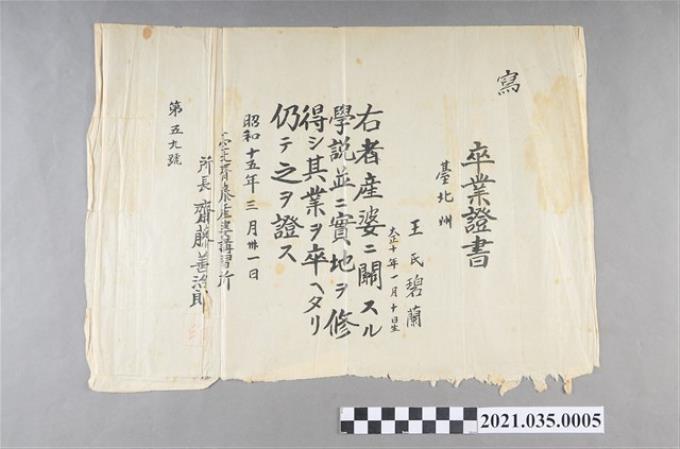 寫
卒業證書
臺北州
王氏碧蘭
大正十年一月十日生
右者産婆ニ關スル
學説並ニ實地ヲ修
得シ其業ヲ卒ヘタリ
仍テ之ヲ證ス
昭和十五年三月卅一日
産婆講習所
所長 齋藤善治郎
第五九號
2021.035.0005